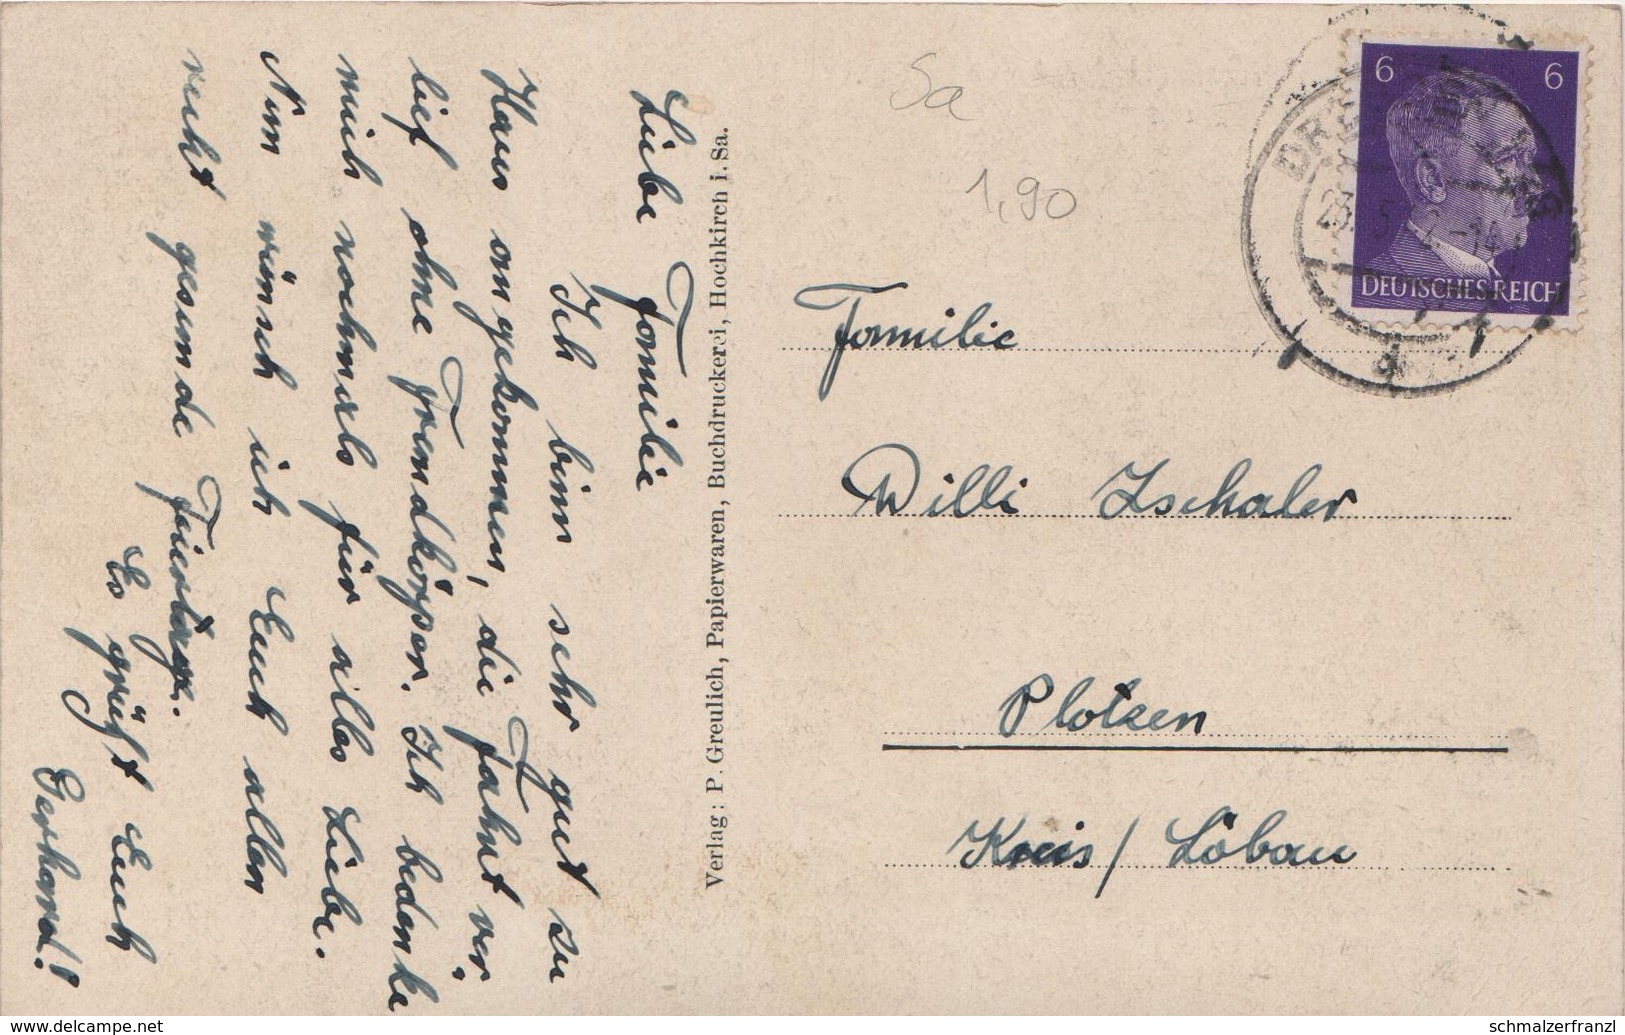 Liebe Familie
Ich binn sehr gut zu
Haus angekommen, die Fahrt ver
lief ohne Fremdkörper. Ich bedanke
mich nochmals für alles Liebe.
Nun wünsch ich Euch allen
recht gesunde Feiertage.
Es grüßt Euch
Gerhard!
Verlag: P. Greulich, Papierwaren, Buchdruckerei, Hochkirch i. Sa.
Sa
1,90
6 6
DEUTSCHES REICH
Familie
Willi Zschaler
Plotzen
Kreis / Löbau
www.delcampe.net
schmalzerfranzl